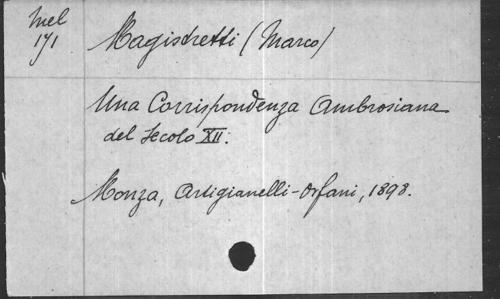 Mel
171
Magistretti (Marco)
Una Corrispondenza Ambrosiana
del Secolo XII.
Monza, Artigianelli-Orfani, 1898.